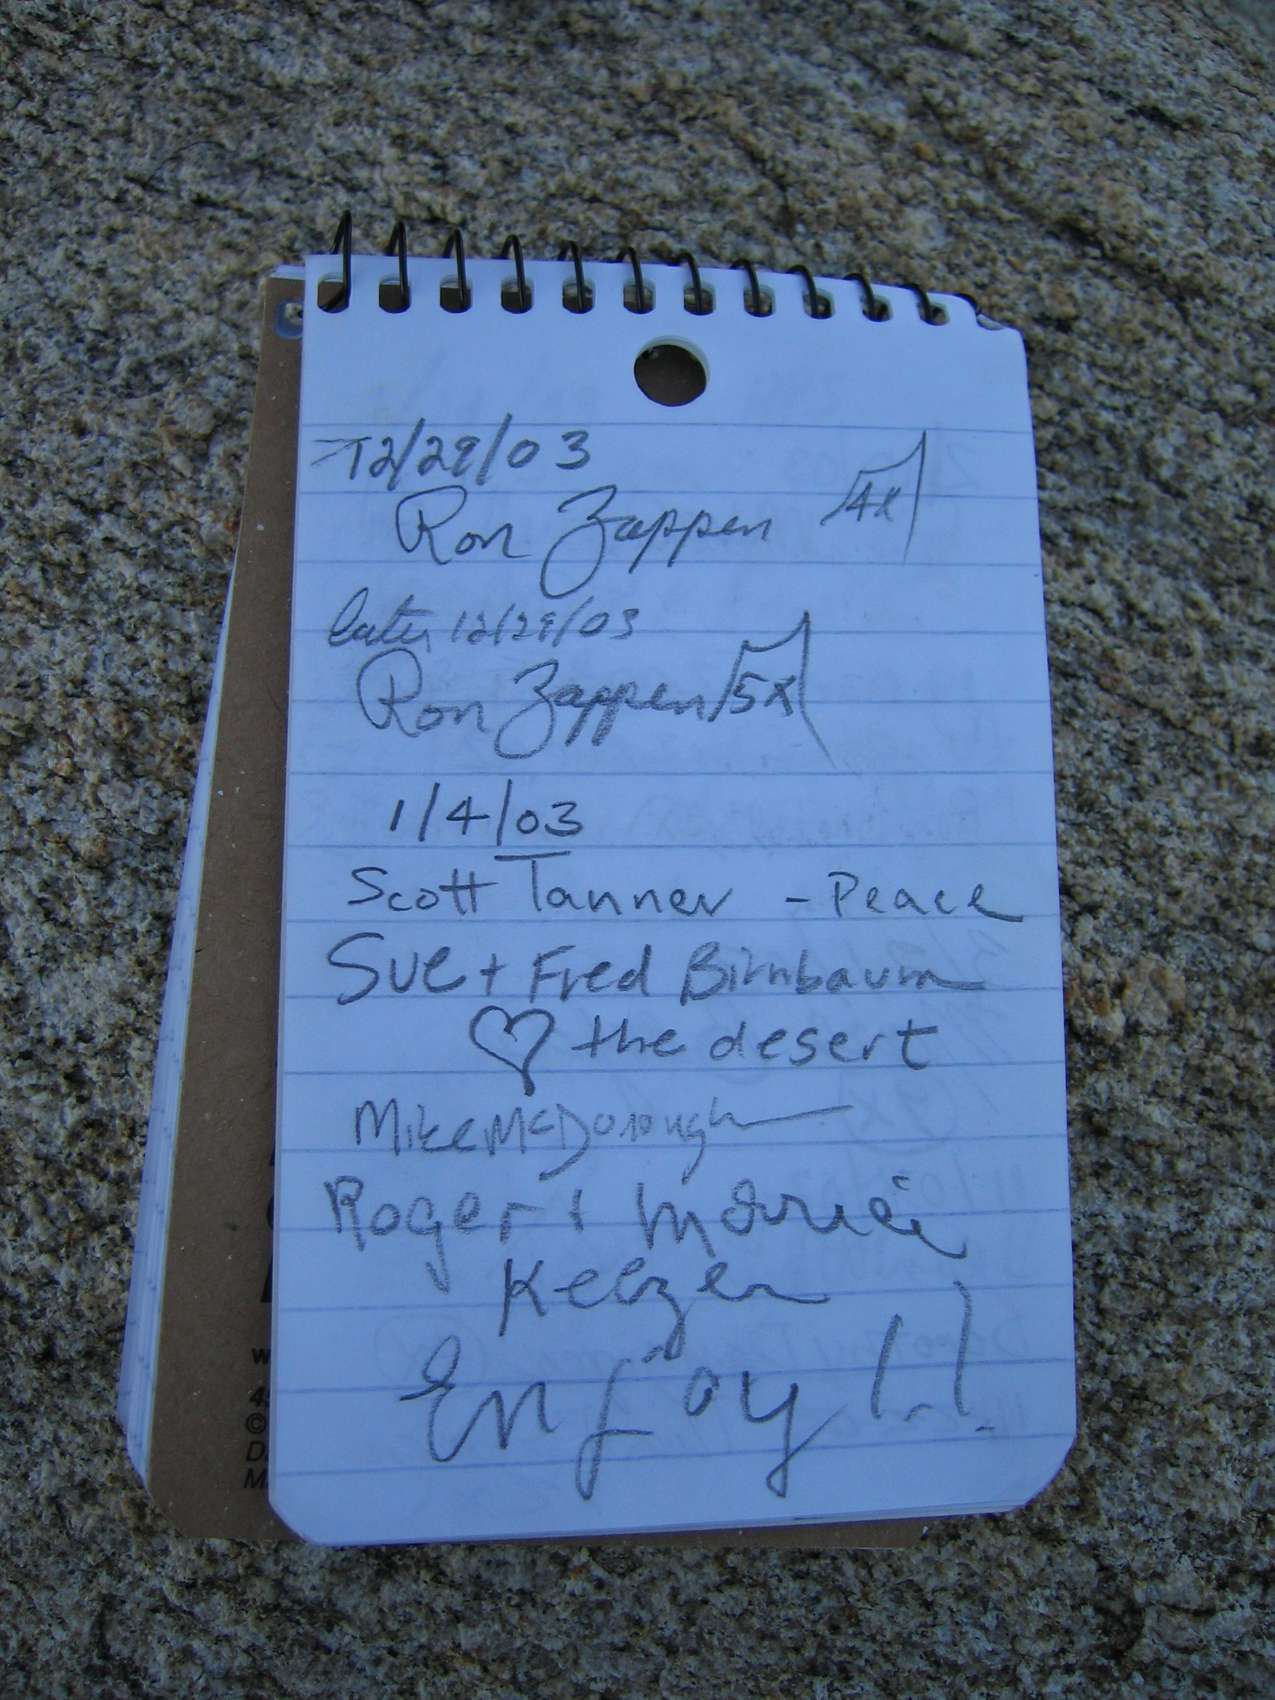 12/29/03
Ron Zappen 4x
later 12/29/03
Ron Zappen 5x
1/4/03
Scott Tanner - Peace
Sue + Fred Birnbaum
♡ the desert
Mike McDonough
Roger +
Enjoy!!